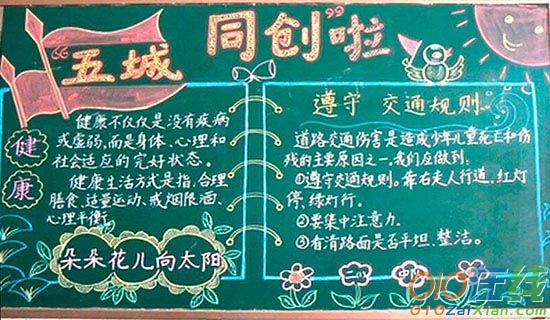 “五城 同创”啦
健康
健康不仅仅是没有疾病
或虚弱,而是身体、心理和
社会适应的完好状态。
健康生活方式是指,合理
膳食、适量运动、戒烟限酒、
心理平衡。
朵朵花儿向太阳
遵守 交通规则。
道路交通伤害是造成少年儿童死亡和伤
残的主要原因之一,我们应做到:
①遵守交通规则。靠右走人行道,红灯
停,绿灯行。
②要集中注意力.
③看清路面是否平坦、整洁。
010在线
010zaixian.com